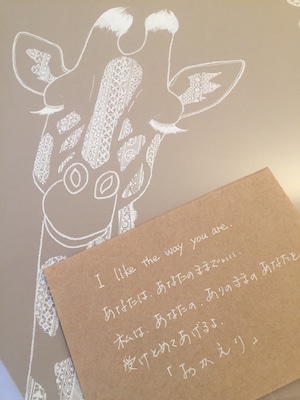 I like the way you are.
あなたは、あなたのままでいい。
私は、あなたの、ありのままのあなたを
受けとめてあげるよ。
「おかえり」